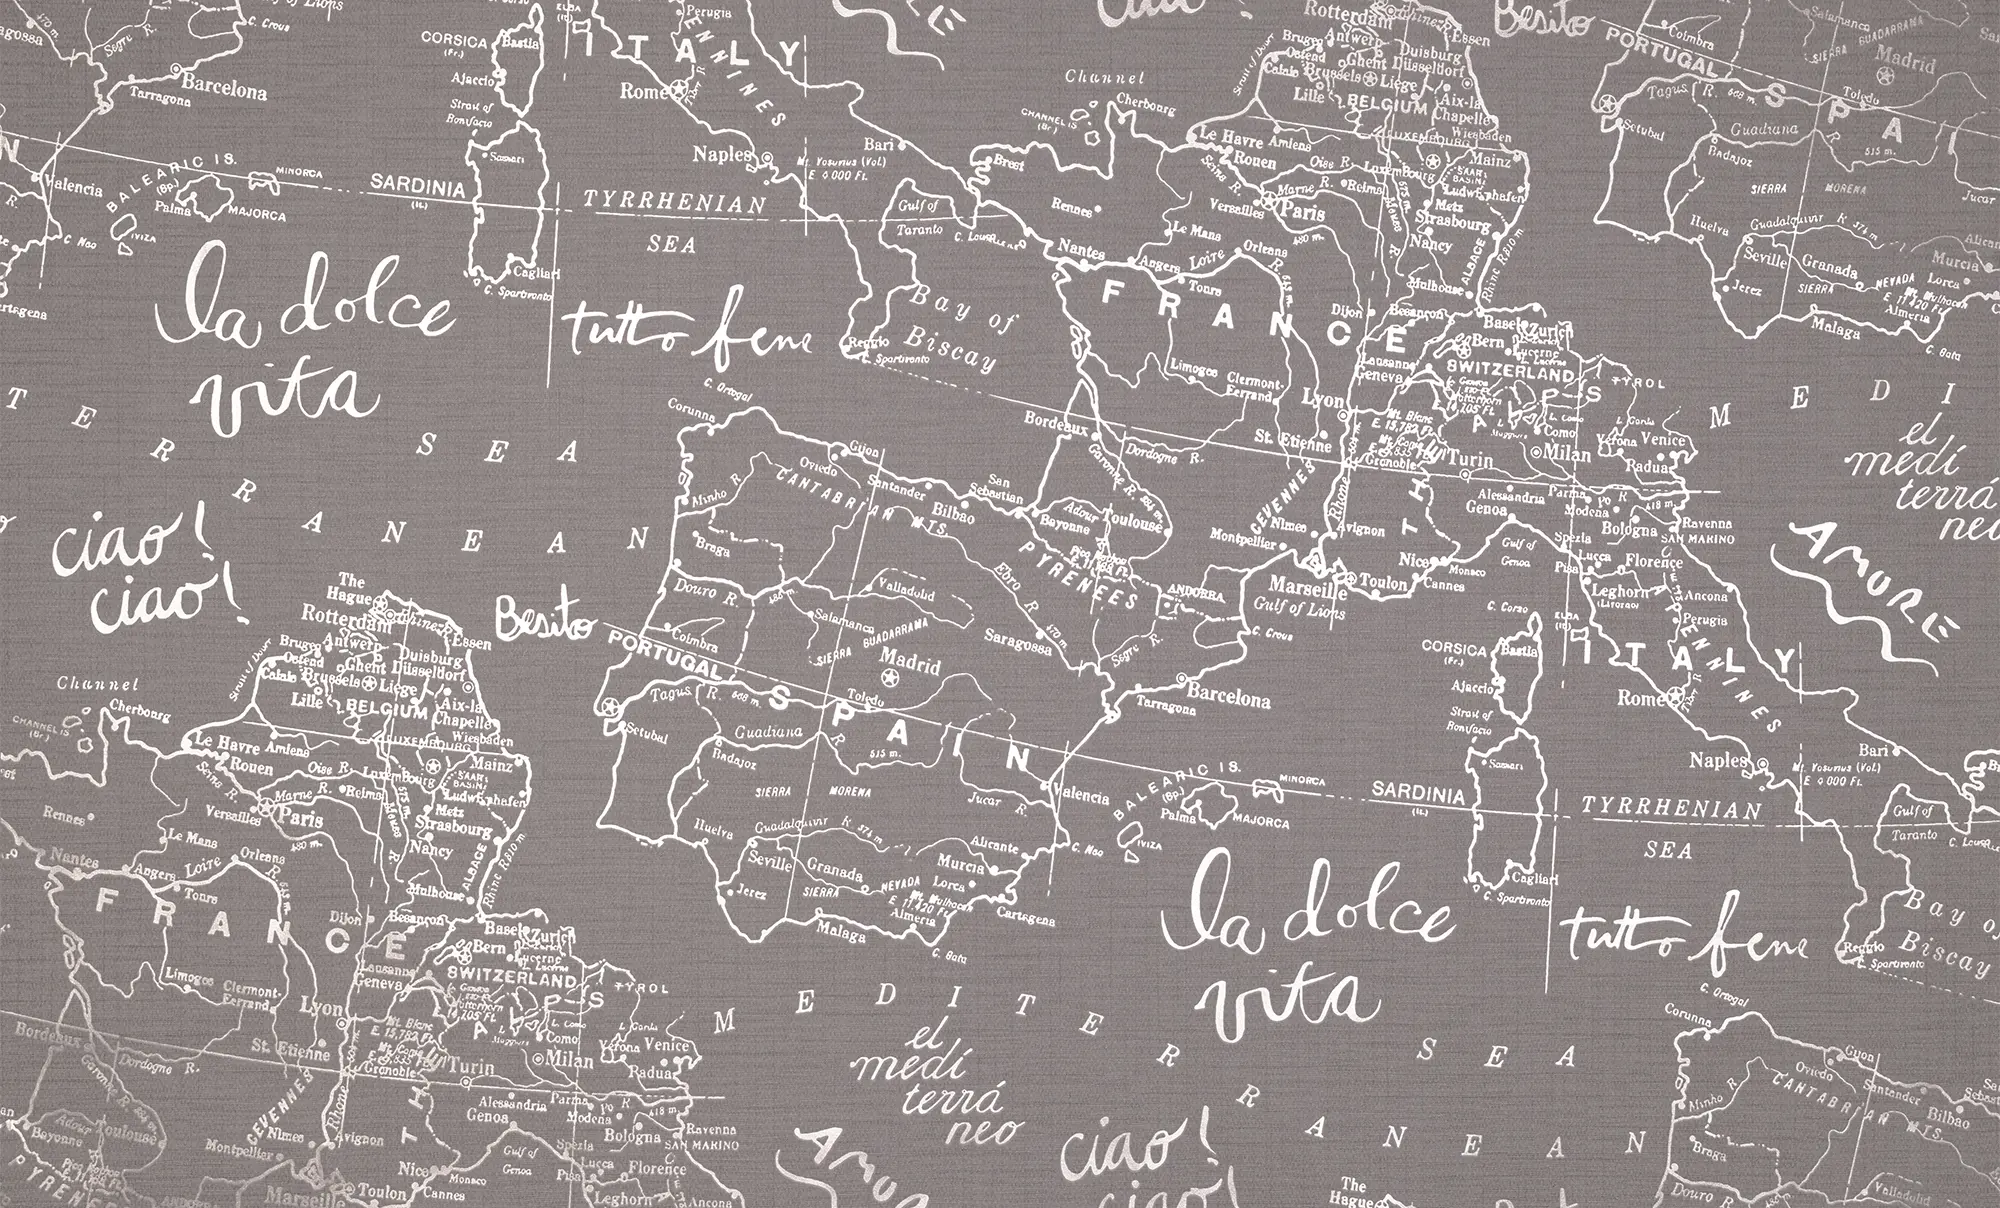 CORSICA
(Fr.)
Bastia
Ajaccio
Strait of
Bonifacio
Sassari
SARDINIA
(It.)
Cagliari
C. Spartivento
ITALY
Perugia
Rome
Naples
Bari
Barcelona
Tarragona
Valencia
BALEARIC IS.
(Sp.)
MINORCA
Palma
MAJORCA
IVIZA
C. Nao
TYRRHENIAN
SEA
Gulf of
Taranto
Reggio
C. Spartivento
Bay of
Biscay
la dolce
vita
tutto bene
ciao!
ciao!
Besito
AMORE
el
medi
terrá
neo
MEDITERRANEAN SEA
Channel
CHANNEL IS.
(Br.)
Cherbourg
Brest
Rennes
Le Havre
Amiens
Rouen
Seine R.
Oise R.
Marne R.
Reims
Versailles
Paris
480 m.
Le Mans
Nantes
Angers
Loire
Orleans
Tours
FRANCE
Limoges
Clermont-
Ferrand
Lyon
Bordeaux
Dordogne R.
St. Etienne
Garonne R.
CEVENNES
Rhone
Grenoble
Nimes
Avignon
Montpellier
Marseille
Toulon
Nice
Monaco
Cannes
Gulf of Lions
Toulouse
Adour
Bayonne
PYRENEES
ANDORRA
The
Hague
Rotterdam
Essen
Antwerp
Duisburg
Ostend
Ghent
Düsseldorf
Calais
Brussels
Liege
Lille
BELGIUM
Aix-la
Chapelle
LUXEMBOURG
Wiesbaden
Mainz
Luxembourg
SAAR
BASIN
Ludwigshafen
Metz
Strasbourg
Nancy
ALSACE
Rhine R. 810 m.
Mulhouse
Dijon
Besançon
Basel
Zurich
Bern
Lucerne
Lausanne
Geneva
SWITZERLAND
TYROL
ALPS
Mt. Blanc
E. 15,782 Ft.
L. Como
Como
L. Garda
Verona
Venice
Milan
Padua
Turin
Alessandria
Parma
Po R.
418 m.
Genoa
Modena
Bologna
Ravenna
SAN MARINO
Gulf of
Genoa
Spezia
Lucca
Florence
Pisa
Leghorn
(Livorno)
Ancona
C. Corso
ELBA
(It.)
APENNINES
C. Ortegal
Corunna
Gijon
Oviedo
Santander
San
Sebastian
Bilbao
CANTABRIAN MTS.
Minho R.
Braga
Douro R.
Valladolid
Ebro R.
Saragossa
Segre R.
C. Creus
Coimbra
Salamanca
SIERRA GUADARRAMA
Madrid
PORTUGAL
Tagus R.
Toledo
SPAIN
Setubal
Guadiana
515 m.
Badajoz
SIERRA MORENA
Jucar R.
Huelva
Guadalquivir R. 374 m.
Seville
Granada
Alicante
Murcia
SIERRA NEVADA
Lorca
Mt. Mulhacen
E. 11,420 Ft.
Almeria
Cartagena
Jerez
Malaga
C. Gata